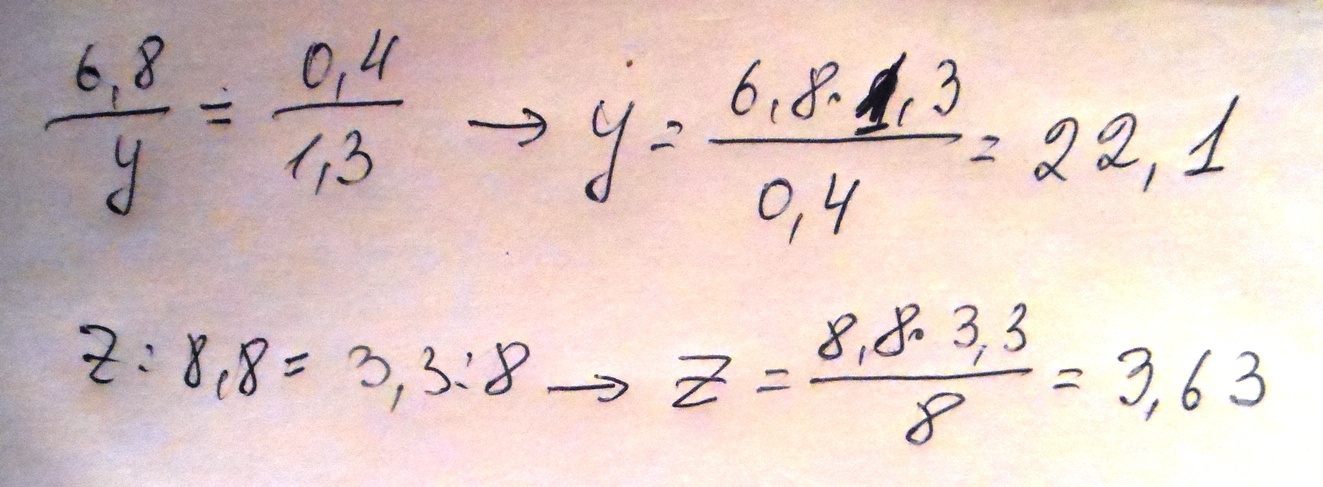 6,8/y = 0,4/1,3 → y = 6,8·1,3/0,4 = 22,1
z : 8,8 = 3,3 : 8 → z = 8,8·3,3/8 = 3,63